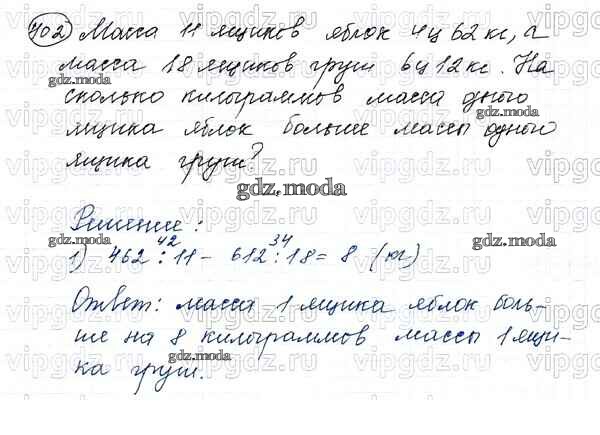 402 Масса 11 ящиков яблок 4ц 62кг, а
масса 18 ящиков груш 6ц 12кг. На
сколько килограммов масса одного
ящика яблок больше массы одного
ящика груш?
Решение:
42 34
1) 462 : 11 - 612 : 18 = 8 (кг)
Ответ: масса 1 ящика яблок боль-
ше на 8 килограммов массы 1 ящи-
ка груш.
gdz.moda
vipgdz.ru